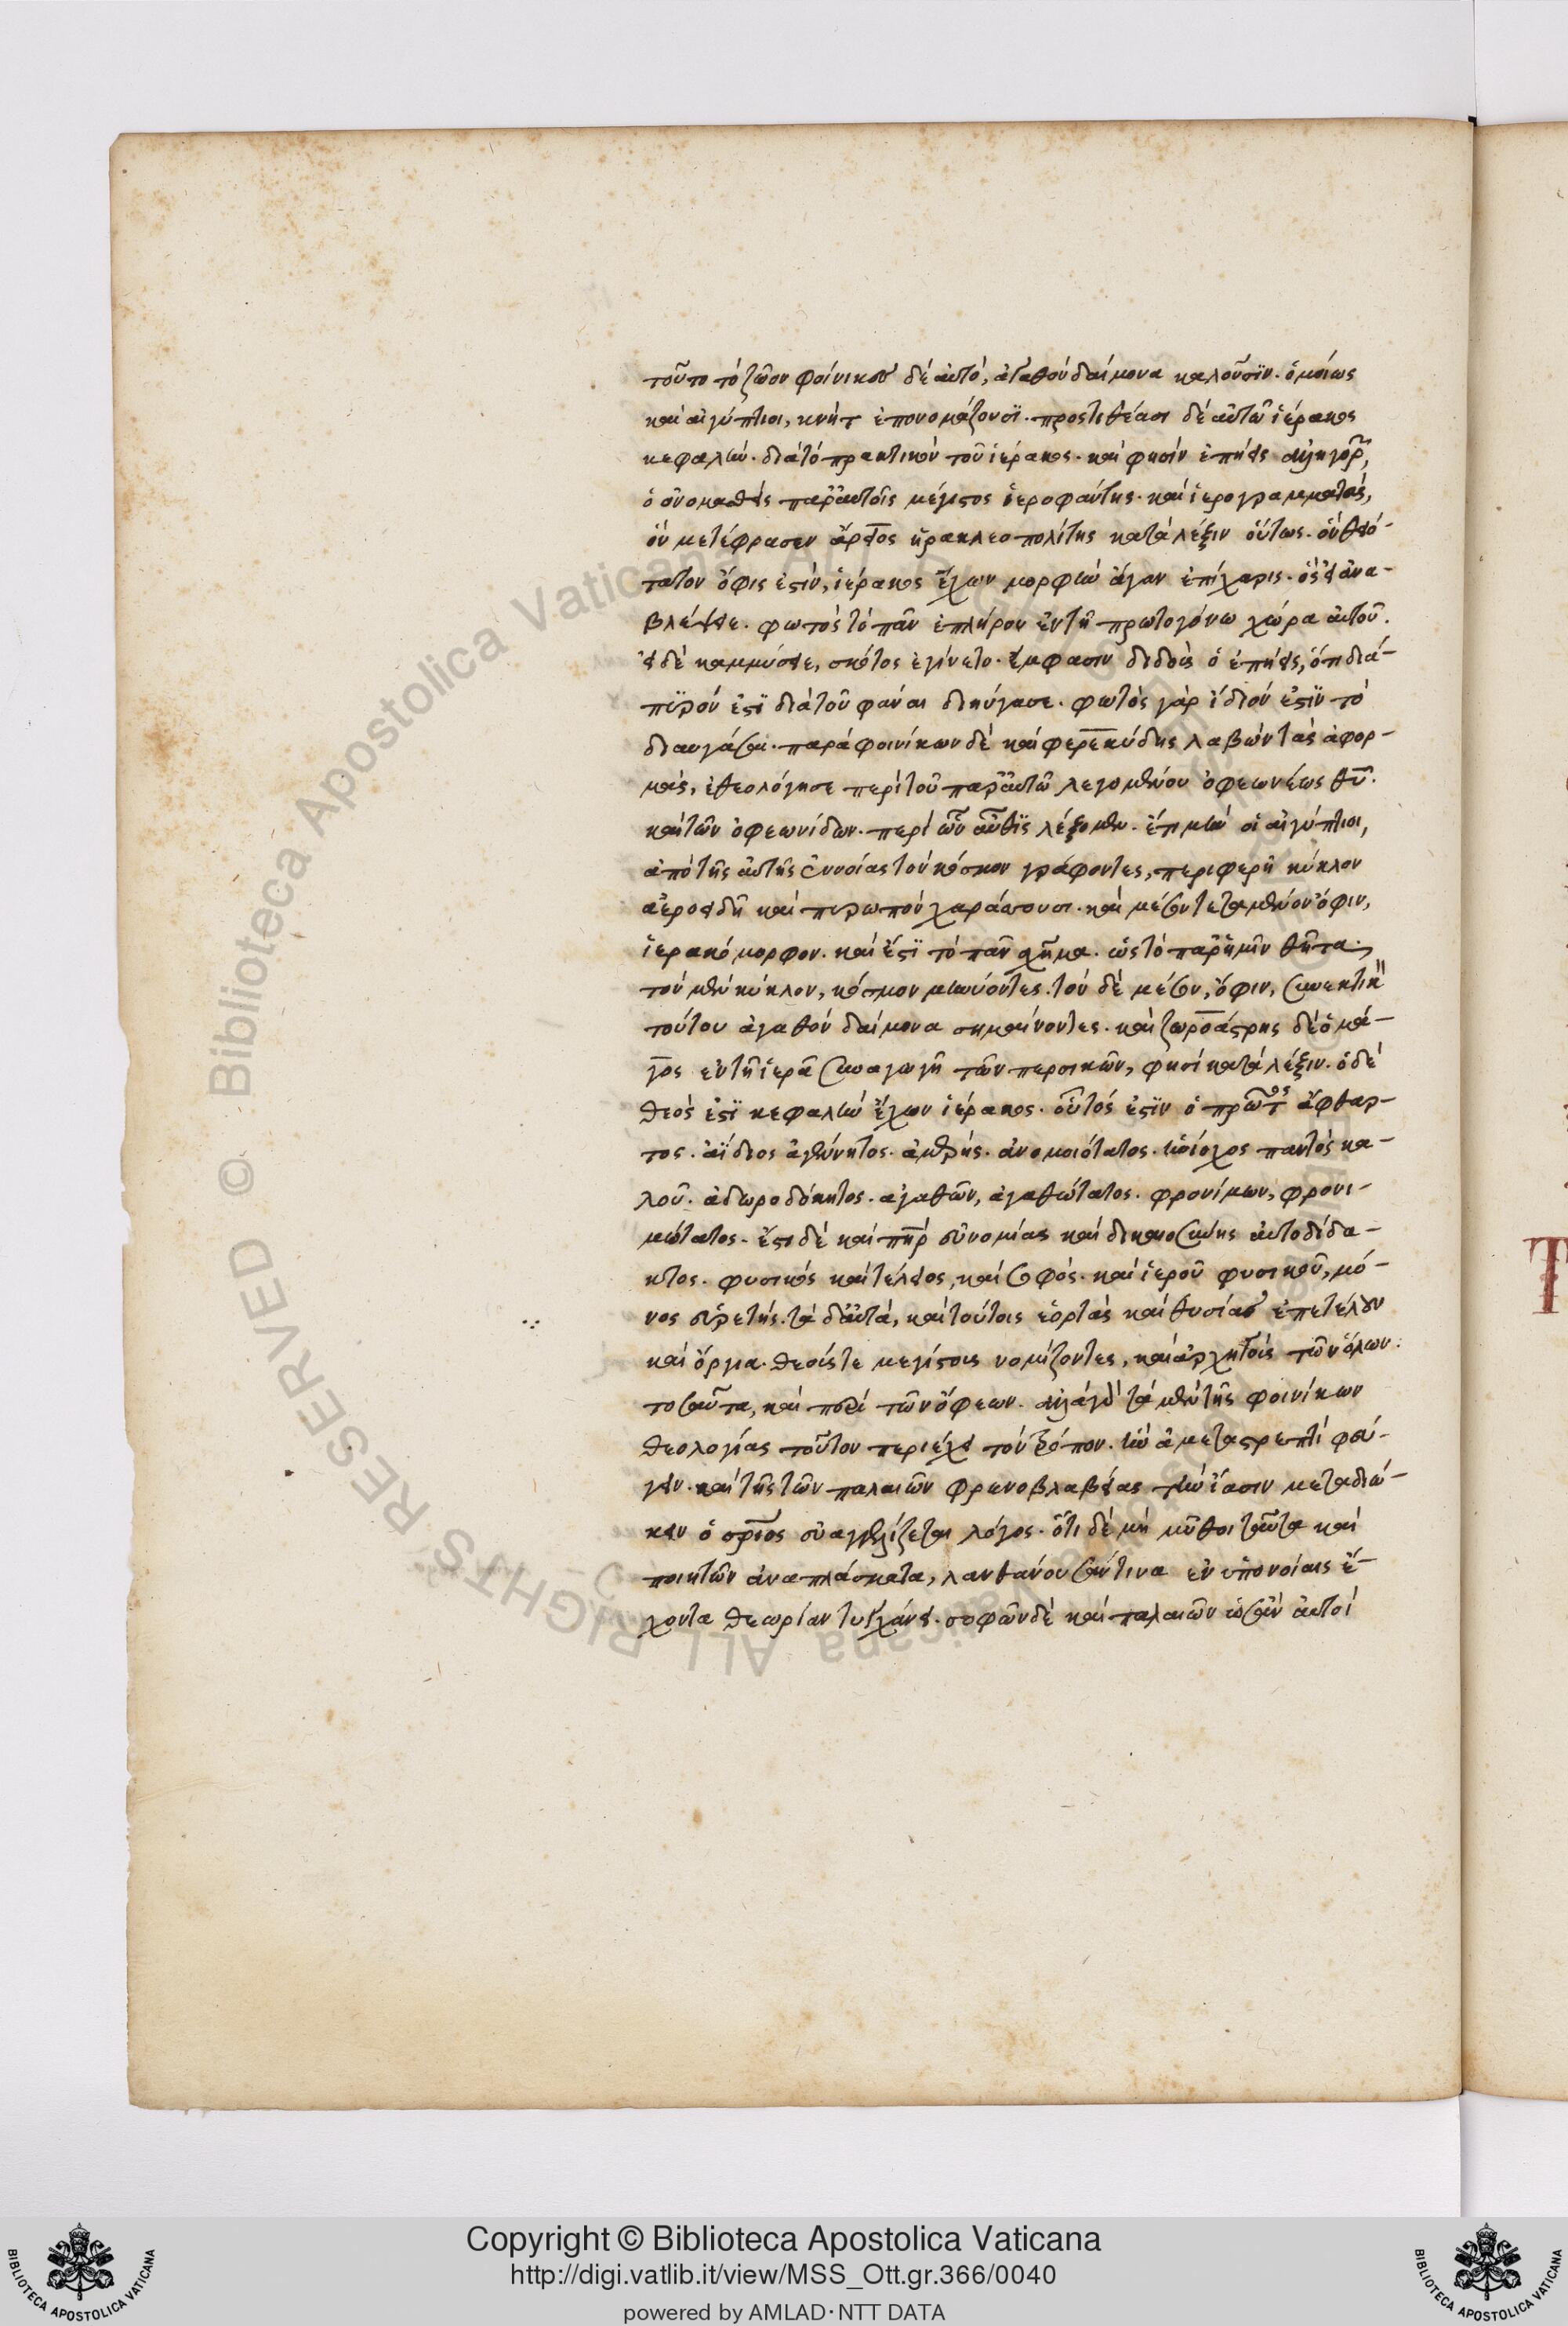 τοῦτο τὸ ζῶον φοίνικες δὲ αὐτὸ, ἀγαθὸν δαίμονα καλοῦσϊν. ὁμοίως
καὶ αἰγύπτιοι, κνὴτ ἐπονομάζουσϊ. προςτιθέασι δὲ αὐτῶ ἱέρακος
κεφαλὴν. διὰ τὸ πρακτικὸν τοῦ ἱέρακος. καὶ φησὶν ἐπήεις ἀλληγορῶν,
ὁ ὀνομασθεὶς παρ' αὐτοῖς μέγιστος ἱεροφάντης. καὶ ἱερογραμματεὺς,
ὃν μετέφρασεν ἄρειος ἡρακλεοπολίτης κατὰ λέξιν οὕτως. ὃν θειό-
τατον ὄφις ἐστὶν, ἱέρακος ἔχων μορφὴν ἄγαν ἐπίχαρις. ὃς εἰ ἀνα-
βλέψειε. φωτὸς τὸ πᾶν ἐπλήρου ἐν τῆ πρωτογόνω χώρα αὐτοῦ.
εἰ δὲ καμμύσειε, σκότος ἐγίνετο. ἔμφασιν διδοὺς ὁ ἐπήεις, ὅτι διά-
πϋρόν ἐστϊ διὰ τοῦ φάναι διηύγασε. φωτὸς γὰρ ἴδιόν ἐστϊν τὸ
διαυγάσαι. παρὰ φοινίκων δὲ καὶ φερεκύδης λαβὼν τὰς ἀφορ-
μὰς, ἐθεολόγησε περὶ τοῦ παρ' αὐτῶ λεγομένου ὀφεωνέως θυ.
καὶ τῶν ὀφεωνίδων. περὶ ὧν αὖθϊς λέξομεν. ἔτι μὴν οἱ αἰγύπτιοι,
ἀπὸ τῆς αὐτῆς ἐννοίας τὸν κόσμον γράφοντες, περιφερῆ κύκλον
ἀεροειδῆ καὶ πυρωπὸν χαράσσουσι. καὶ μέσον τεταμένον ὄφιν,
ἱερακόμορφον. καὶ ἔστϊ τὸ πᾶν σχῆμα. ὡς τὸ παρ' ἡμῖν θῆτα.
τὸν μὲν κύκλον, κόσμον μηνύοντες. τὸν δὲ μέσον, ὄφιν, συνεκτικὸν
τούτου ἀγαθὸν δαίμονα σημαίνοντες. καὶ ζωροάστρης δὲ ὁ μά-
γος ἐν τῆ ἱερᾶ συναγωγῆ τῶν περσικῶν, φησὶ κατὰ λέξιν. ὁ δὲ
θεός ἐστϊ κεφαλὴν ἔχων ἱέρακος. οὗτός ἐστϊν ὁ πρῶτος ἄφθαρ-
τος. ἀΐδιος ἀγένητος. ἀμερής. ἀνομοιότατος. ἡνίοχος παντὸς κα-
λοῦ. ἀδωροδόκητος. ἀγαθῶν, ἀγαθώτατος. φρονίμων, φρονι-
μώτατος. ἔστι δὲ καὶ πηρ εὐνομίας καὶ δικαιοσύνης αὐτοδίδα-
κτος. φυσικὸς καὶ τέλειος, καὶ σοφὸς. καὶ ἱεροῦ φυσικοῦ, μό-
νος εὑρετής. τὰ δ' αὐτὰ, καὶ τούτοις ἑορτὰς καὶ θυσίας ἐπετέλουν
καὶ ὄργια. θεοὺς τε μεγίστους νομίζοντες, καὶ ἀρχηγοὺς τῶν ὅλων.
τοσαῦτα, καὶ περὶ τῶν ὄφεων. ἀλλὰ γὰρ τὰ μὲν τῆς φοινίκων
θεολογίας τοῦτον περιέχει τὸν τρόπον. ἣν ἀμεταστρεπτὶ φεύ-
γειν. καὶ τῆς τῶν παλαιῶν φρενοβλαβείας τὴν ἴασιν μεταδιώ-
κειν ὁ σωτήριος εὐαγγελίζεται λόγος. ὅτι δὲ μὴ μῦθοι ταῦτα καὶ
ποιητῶν ἀναπλάσματα, λανθάνουσάν τινα ἐν ὑπονοίαις ἔ-
χοντα θεωρίαν τυγχάνει. σοφῶν δὲ καὶ παλαιῶν ὡς ἂν αὐτοὶ
Copyright © Biblioteca Apostolica Vaticana
http://digi.vatlib.it/view/MSS_Ott.gr.366/0040
powered by AMLAD · NTT DATA